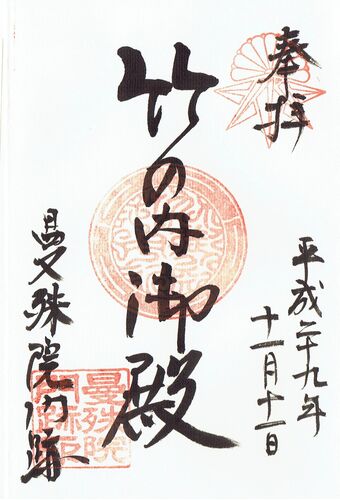 奉拝
平成二十九年
十一月十一日
竹の内御殿
曼殊院門跡
曼殊院
門跡印